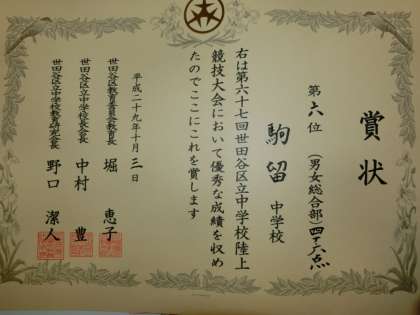 賞状
第六位 (男女総合部)四十六点
駒留中学校
右は第六十七回世田谷区立中学校陸上
競技大会において優秀な成績を収め
たのでここにこれを賞します
平成二十九年十月三日
世田谷区教育委員会教育長 堀 恵子
世田谷区立中学校長会長 中村 豊
世田谷区立中学校教育研究会長 野口 潔人